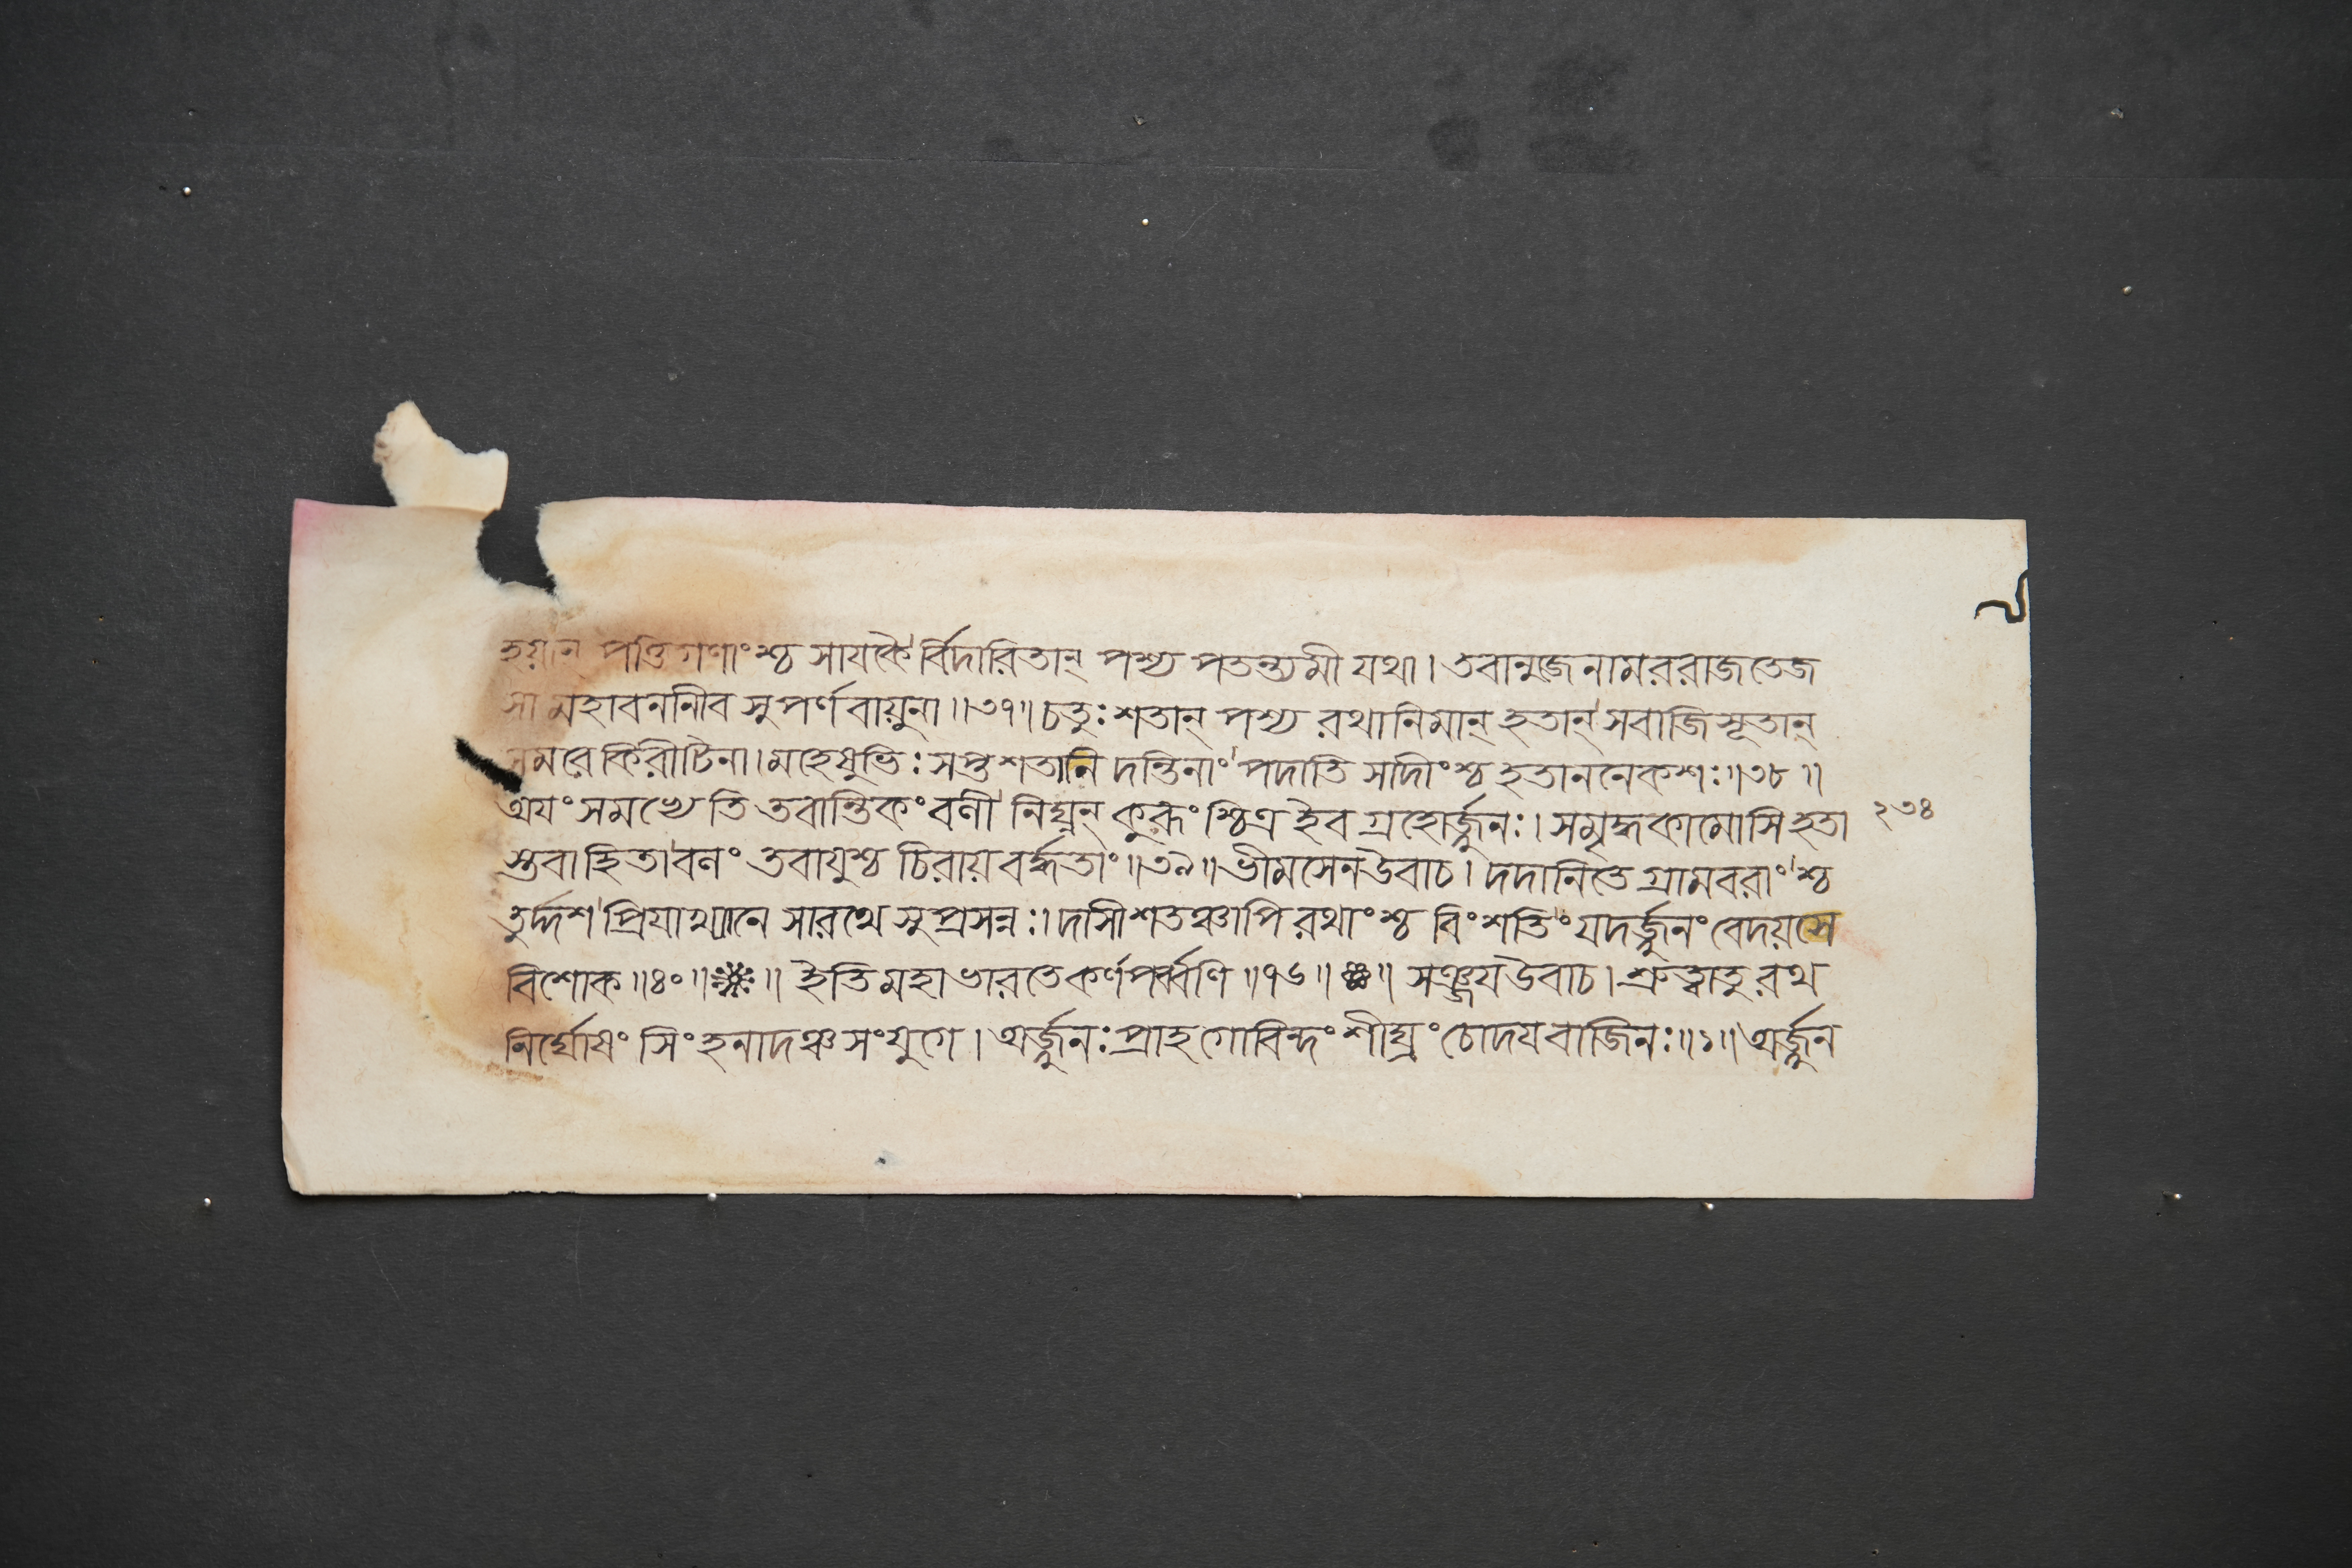 হয়ান্ পত্তিগণাংশ্চ সাযকৈর্বিদারিতান্ পশ্য পতন্ত্যমী যথা। তবানুজেনামররাজতেজ
সা মহাবনানীব সুপর্ণবায়ুনা॥৩৭॥ চতুঃশতান্ পশ্য রথানিমান্ হতান্ সবাজিসূতান্
সমরে কিরীটিনা। মহেষুভিঃ সপ্তশতানি দন্তিনাং পদাতি সাদীংশ্চ হতাননেকশঃ॥৩৮॥
অযং সমভ্যেতি তবান্তিকং বলী নিঘ্নন্ কুরূংশ্চিত্র ইব গ্রহোর্জ্জুনঃ। সমৃদ্ধকামোসি হতা
২৩৪
স্তবাহিতা বলং তবাযুশ্চ চিরায় বর্দ্ধতাং॥৩৯॥ ভীমসেন উবাচ। দদানি তে গ্রামবরাংশ্চ
তুর্দ্দশ প্রিযাখ্যানে সারথে সুপ্রসন্নঃ। দাসীশতঞ্চাপি রথাংশ্চ বিংশতিং যদর্জ্জুনং বেদয়সে
বিশোক॥৪০॥ ॥ ইতি মহাভারতে কর্ণপর্ব্বণি॥৭৬॥ ॥ সঞ্জয উবাচ। শ্রুত্বা তু রথ
নির্ঘোষং সিংহনাদঞ্চ সংযুগে। অর্জ্জুনঃ প্রাহ গোবিন্দং শীঘ্রং চোদয বাজিনঃ॥১॥ অর্জ্জুন